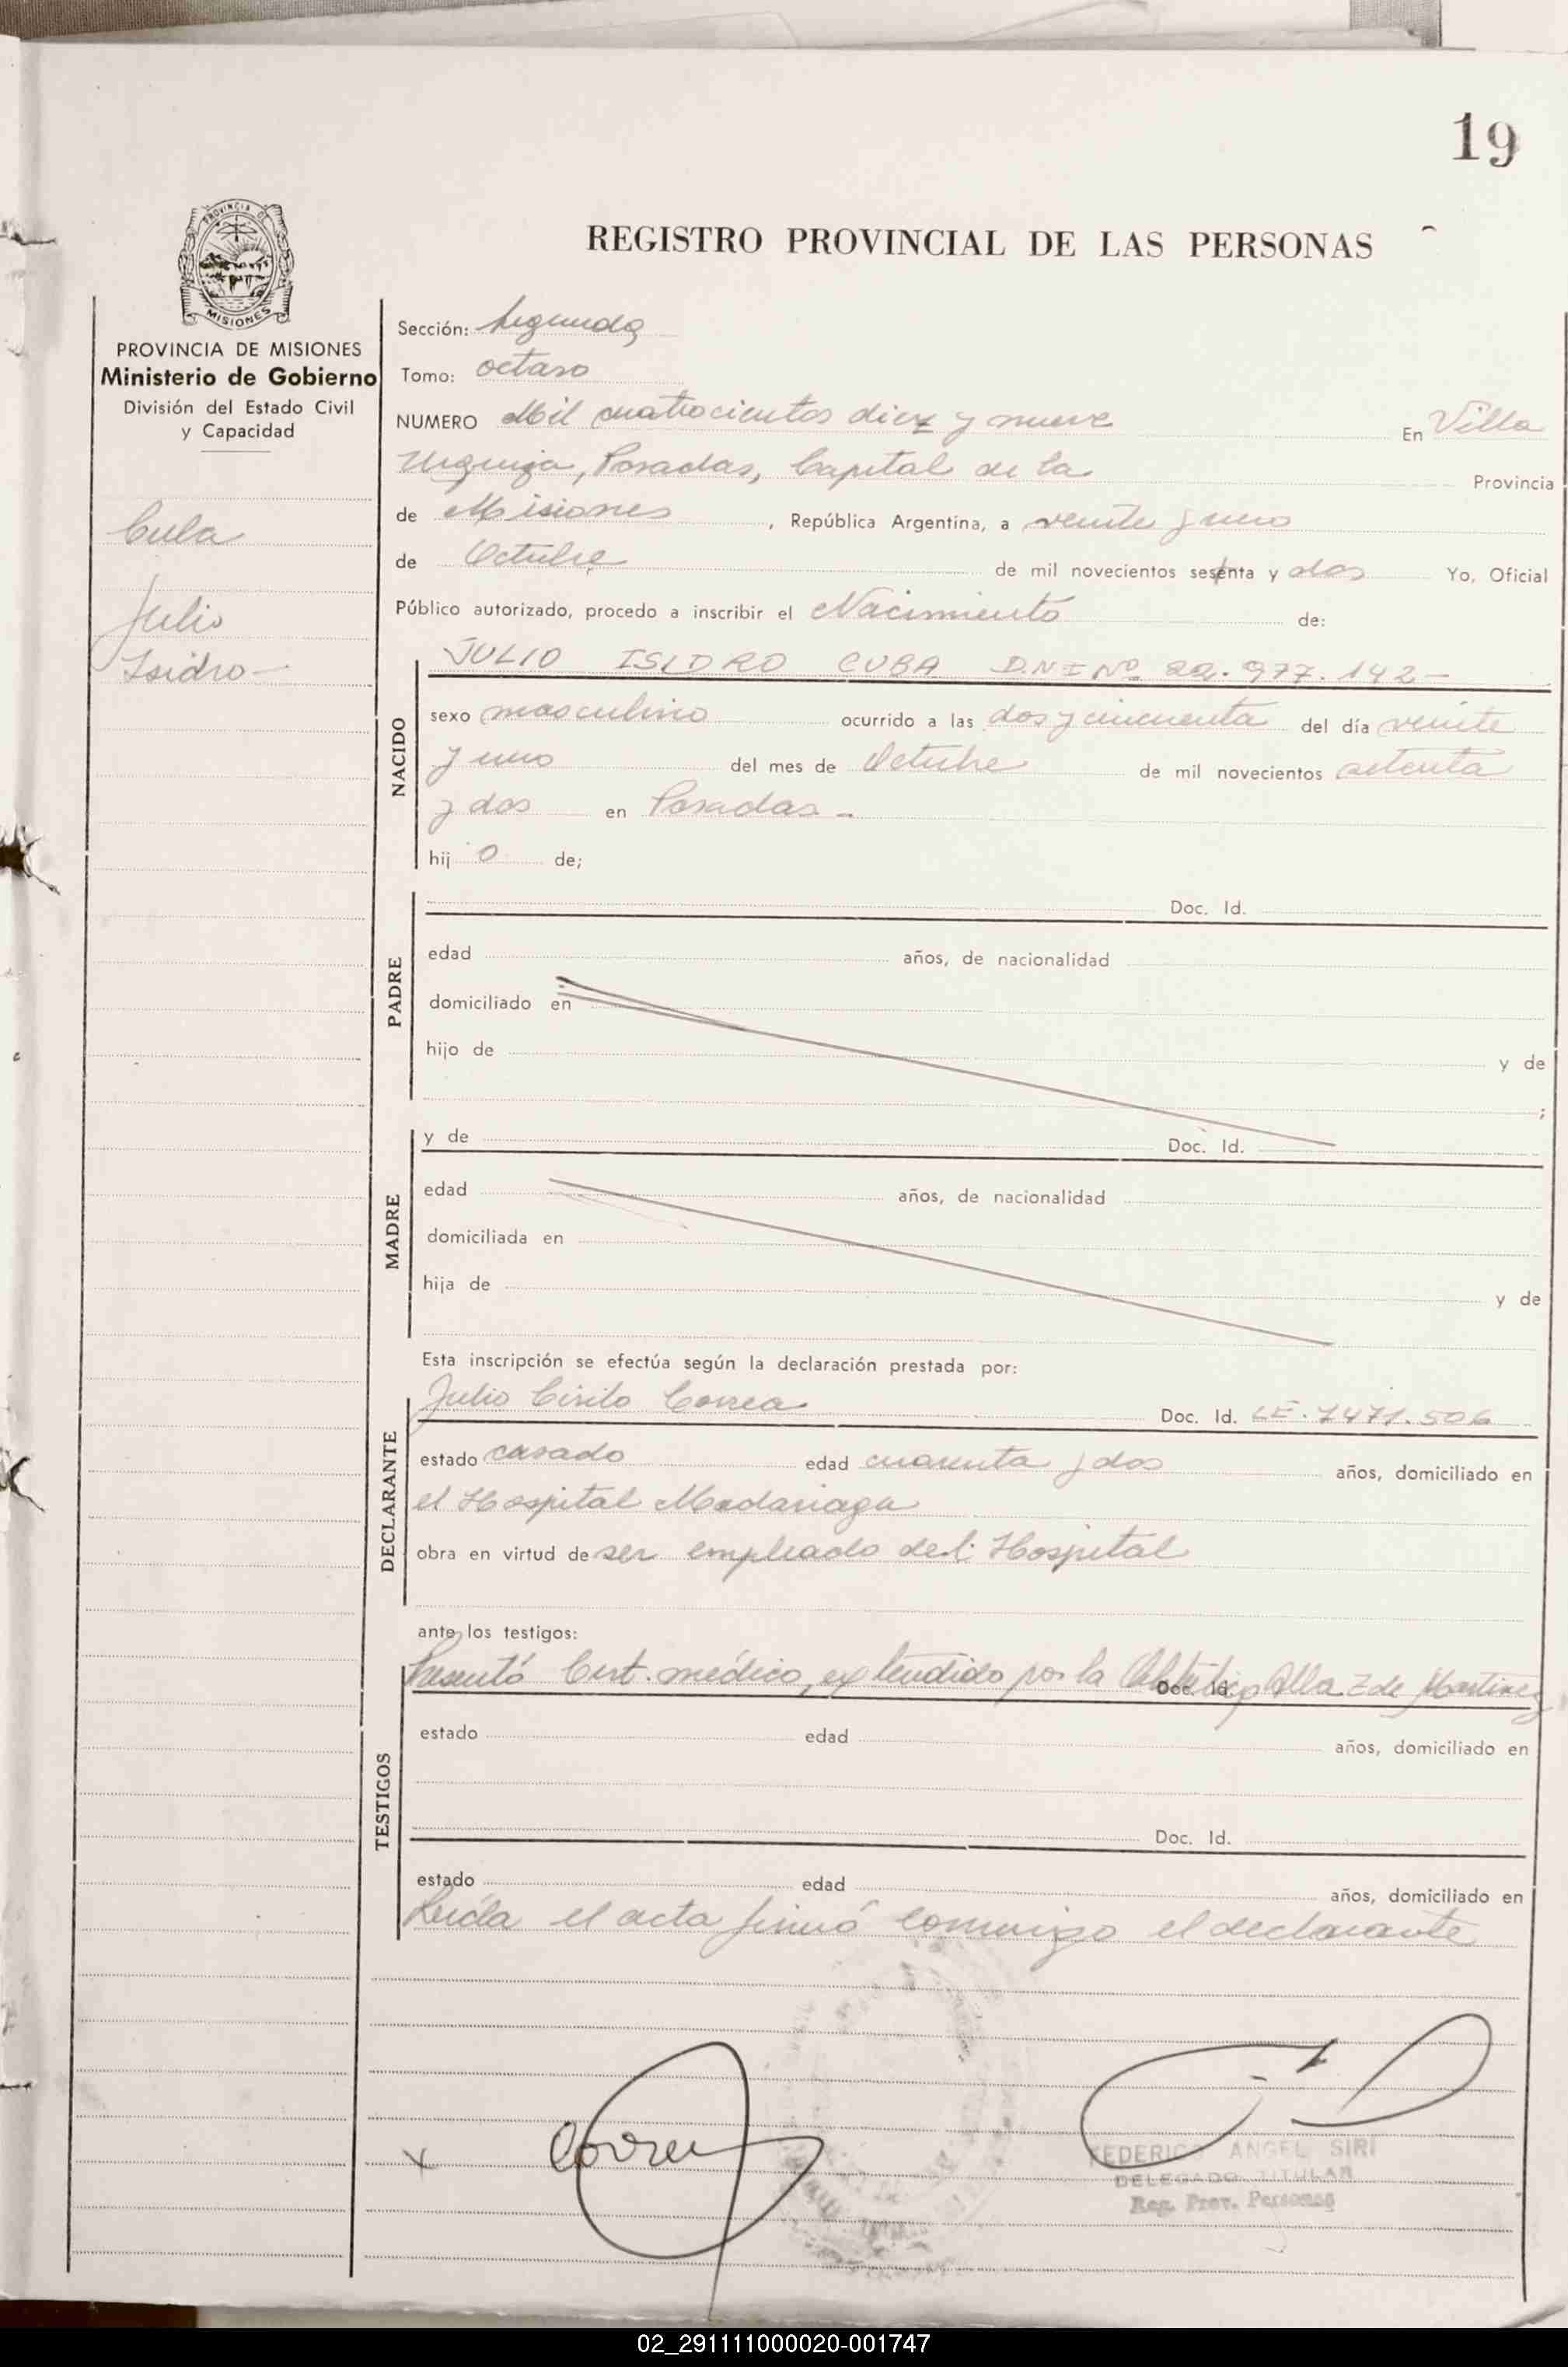 19
REGISTRO PROVINCIAL DE LAS PERSONAS
PROVINCIA DE MISIONES
PROVINCIA DE MISIONES
Ministerio de Gobierno
División del Estado Civil
y Capacidad
Cuba
Julio
Isidro-
Sección: Segunda
Tomo: octavo
NUMERO Mil cuatrocientos diez y nueve En Villa
Urquiza, Posadas, Capital de la Provincia
de Misiones, República Argentina, a veinte y uno
de Octubre de mil novecientos setenta y dos Yo, Oficial
Público autorizado, procedo a inscribir el Nacimiento de:
JULIO ISIDRO CUBA D.N.I Nº 22.977.142-
NACIDO
sexo masculino ocurrido a las dos y cincuenta del día veinte
y uno del mes de Octubre de mil novecientos setenta
y dos en Posadas -
hij o de;
PADRE
Doc. Id.
edad años, de nacionalidad
domiciliado en
hijo de y de
;
MADRE
y de Doc. Id.
edad años, de nacionalidad
domiciliada en
hija de y de
Esta inscripción se efectúa según la declaración prestada por:
DECLARANTE
Julio Cirilo Correa Doc. Id. LE. 7471.506
estado casado edad cuarenta y dos años, domiciliado en
el Hospital Madariaga
obra en virtud de ser empleado del Hospital
ante los testigos:
TESTIGOS
Presentó Cert. médico, extendido por la Doc. Id. Z de Martinez
estado edad años, domiciliado en
Doc. Id.
estado edad años, domiciliado en
Leída el acta firmó conmigo el declarante
x Correa
FEDERICO ANGEL SIRI
DELEGADO TITULAR
Reg. Prov. Personas
02_291111000020-001747